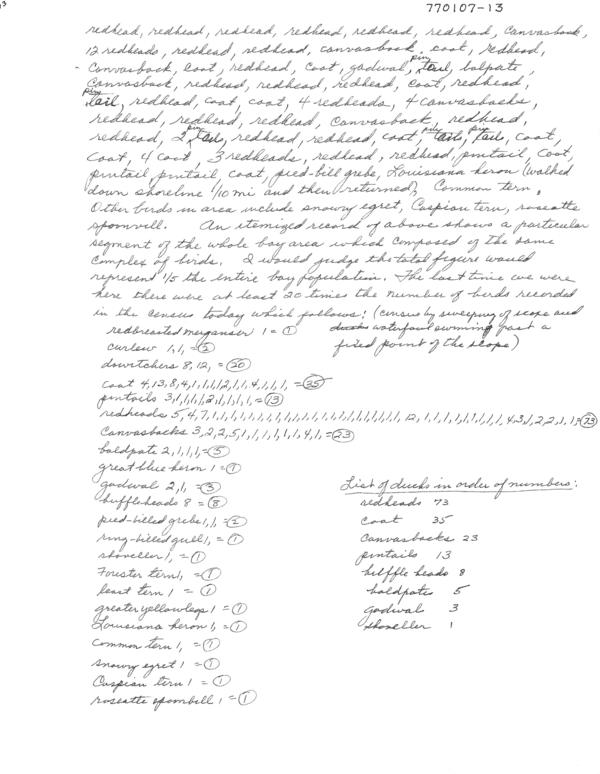 770107-13
redhead, redhead, redhead, redhead, redhead, redhead, Canvasback,
12 redheads, redhead, redhead, canvasback, coot, redhead,
Canvasback, coot, redhead, coot, gadwal, pin tail, balpate,
Canvasback, redhead, redhead, redhead, coot, redhead,
pin tail, redhead, coot, coot, 4 redheads, 4 canvasbacks,
redhead, redhead, redhead, Canvasback, redhead,
redhead, 2 pin tails, redhead, redhead, coot, pin tail, pin tail, coot,
coot, 4 coot, 3 redheads, redhead, redhead, pintail, coot,
pintail, pintail, coot, pied-bill grebe, Louisiana heron (walked
down shoreline 1/10 mi and then returned), Common tern.
Other birds in area include snowy egret, Caspian tern, roseatte
spoonvill. An itemized record of above shows a particular
segment of the whole bay area which composed of the same
complex of birds. I would judge the total figure would
represent 1/5 the entire bay population. The last time we were
here there were at least 20 times the number of birds recorded
in the census today which follows: (census by sweeping of scope and
ducks waterfowl swimming past a
fixed point of the scope)
redbreasted merganser 1 = 1
curlew 1, 1, = 2
dowitchers 8, 12, = 20
coot 4, 13, 8, 4, 1, 1, 1, 1, 2, 1, 1, 4, 1, 1, 1, = 35
pintails 3, 1, 1, 1, 1, 2, 1, 1, 1, 1, = 13
redheads 5, 4, 7, 1, 1, 1, 1, 1, 1, 1, 1, 1, 1, 1, 1, 1, 1, 1, 1, 1, 1, 1, 12, 1, 1, 1, 1, 1, 1, 1, 1, 4, 3, 1, 2, 2, 1, 1, = 73
Canvasbacks 3, 2, 2, 5, 1, 1, 1, 1, 1, 1, 4, 1, = 23
baldpate 2, 1, 1, 1, = 5
great blue heron 1 = 1
gadwal 2, 1, = 3
buffleheads 8 = 8
pied-billed grebe 1, 1, = 2
ring-billed gull 1, = 1
shoveller 1, = 1
Forister tern 1, = 1
least tern 1 = 1
greater yellowlegs 1 = 1
Louisiana heron 1, = 1
common tern 1, = 1
snowy egret 1 = 1
Caspian tern 1 = 1
roseatte spoonbill 1 = 1
List of ducks in order of numbers:
redheads 73
coot 35
Canvasbacks 23
pintails 13
bufffle heads 8
baldpates 5
gadwal 3
shoveller 1